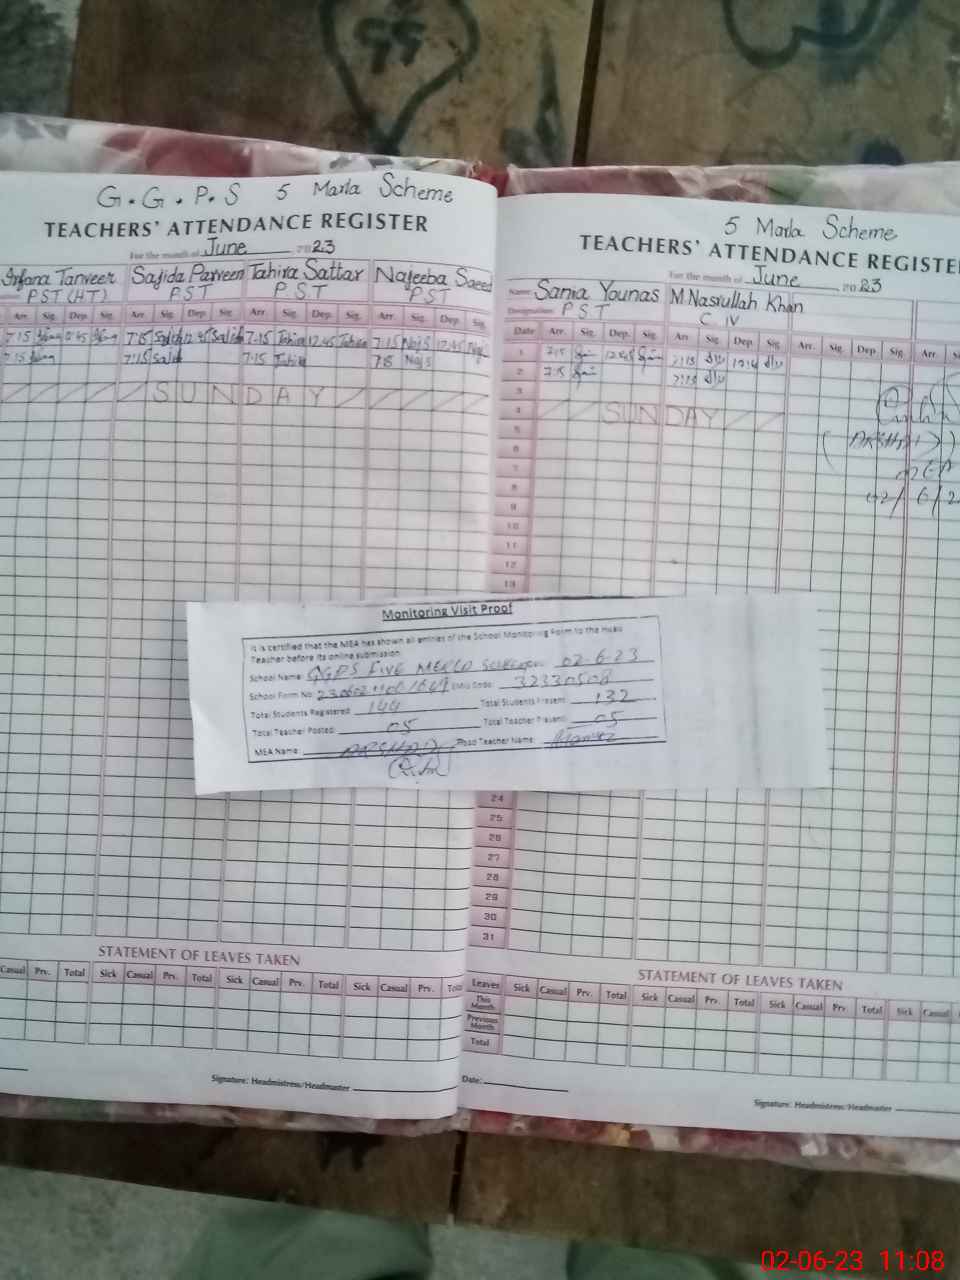 G.G.P.S 5 Marla Scheme
TEACHERS' ATTENDANCE REGISTER
For the month of June 2023
Irfana Tanveer Sajida Parveen Tahira Sattar Najeeba Saeed
PST (HT) P.S.T P.S.T PST
Arr. Sig. Dep. Sig. Arr. Sig. Dep. Sig. Arr. Sig. Dep. Sig. Arr. Sig. Dep. Sig.
7:15 12:45 7:15 Sajida 12:45 Sajida 7:15 Tahira 12:45 Tahira 7:15 Najb 12:45 Najb
7:15 7:15 Sajida 7:15 Tahira 7:15 Najb
SUNDAY
STATEMENT OF LEAVES TAKEN
Casual Prv. Total Sick Casual Prv. Total Sick Casual Prv. Total Sick Casual Prv. Total
Signature: Headmistress/Headmaster
5 Marla Scheme
TEACHERS' ATTENDANCE REGISTE
For the month of June 2023
Name: Sania Younas M.Nasrullah Khan
Designation: P.S.T C. IV
Date Arr. Sig. Dep. Sig. Arr. Sig. Dep. Sig. Arr. Sig. Dep. Sig. Arr. Sig.
1 7:15 12:45 7:15
2 7:15 7:15
3
4 SUNDAY
5
(ARSHAD)
6
7 MEA
8
02/6/2
9
10
11
12
13
Monitoring Visit Proof
It is certified that the MEA has shown all entries of the School Monitoring Form to the Head
Teacher before its online submission.
School Name: GGPS FIVE 02-6-23
School Form No: EMIS Code: 32330508
Total Students Registered: 144 Total Students Present: 132
Total Teacher Posted: 05 Total Teacher Present: 05
MEA Name: ARSHAD Head Teacher Name:
24
25
26
27
28
29
30
31
STATEMENT OF LEAVES TAKEN
Leaves Sick Casual Prv. Total Sick Casual Prv. Total Sick Casual Prv. Total Sick Casual
This Month
Previous Month
Total
Date:
Signature: Headmistress/Headmaster
02-06-23 11:08